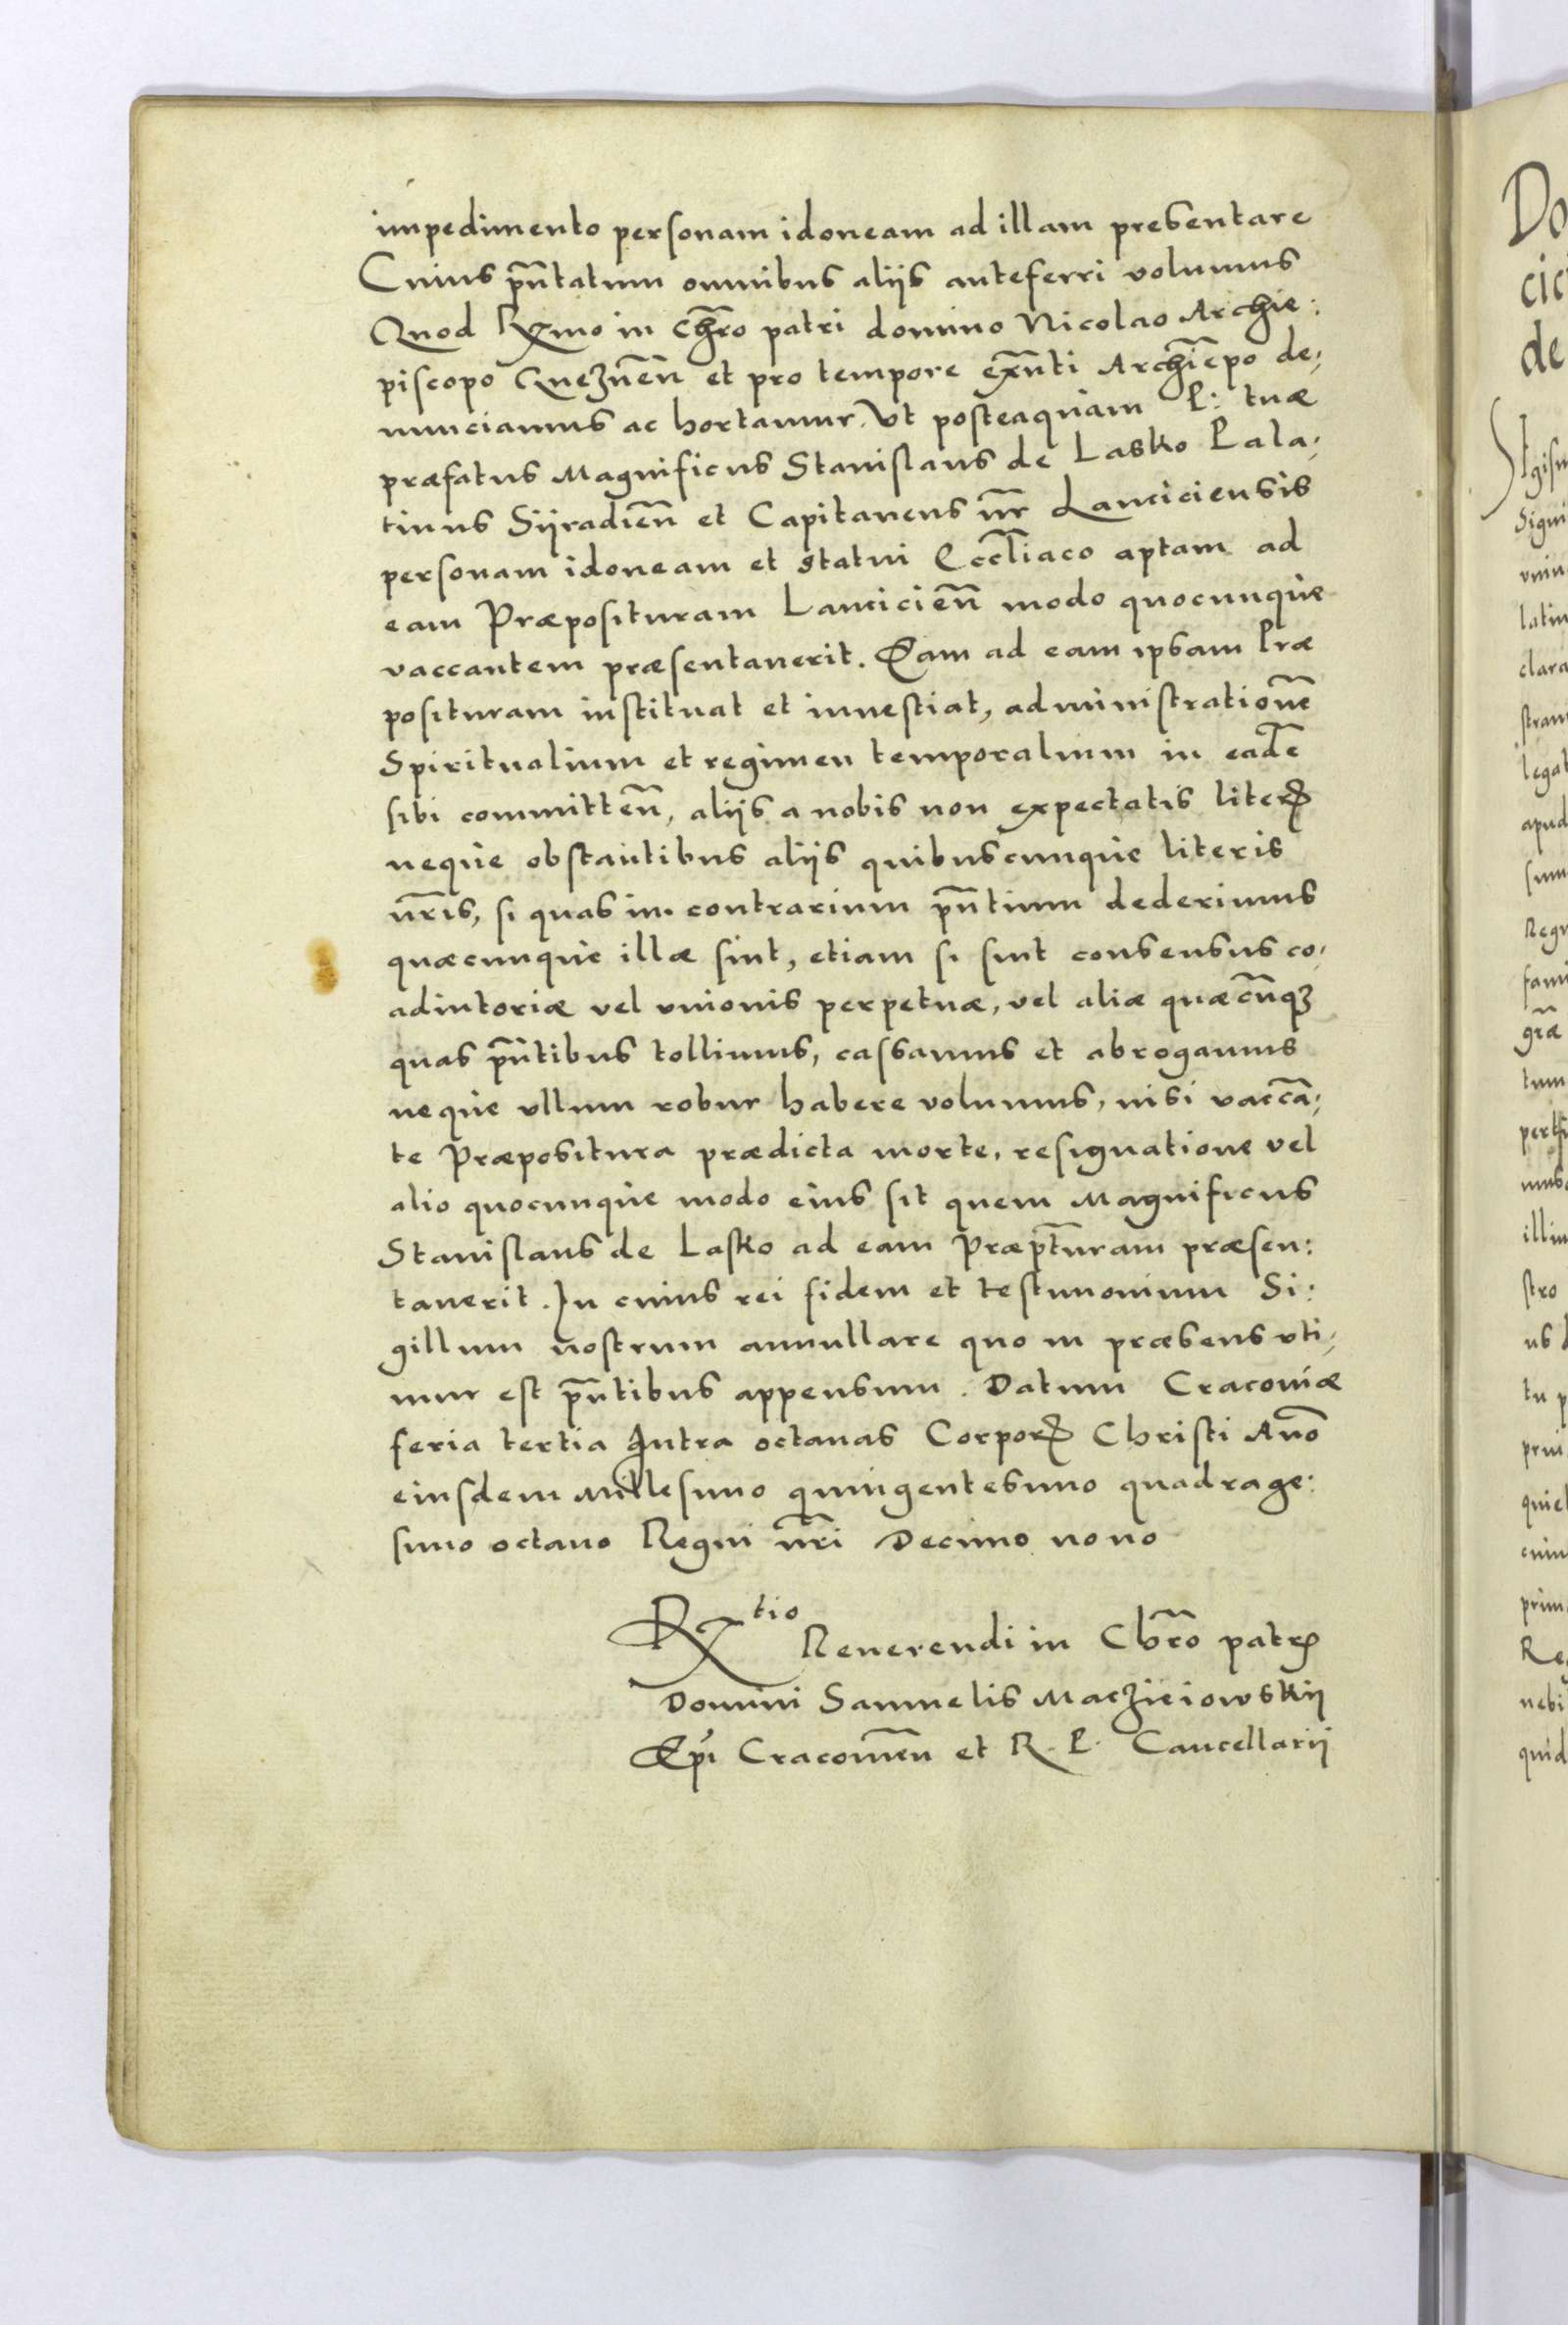 impedimento personam idoneam ad illam presentare
Cuius pñtatum omnibus aliis anteferri volumus
Quod Rx̃mo in Chr̃o patri domino Nicolao Archie:
piscopo Gnezneñ et pro tempore exñti Archiẽpo de,
nunciamus ac hortamur. Vt posteaquam P: tuæ
præfatus Magnificus Stanislaus de Lasko Pala,
tinus Siiradieñ et Capitaneus nr̃ Lanciciensis
personam idoneam et statui Eccl̃iaco aptam ad
eam Præposituram Lancicieñ modo quocunque
vaccantem præsentauerit. Eam ad eam ipsam Præ
posituram instituat et inuestiat, administrationẽ
Spiritualium et regimen temporalium in eadẽ
sibi committeñ, aliis a nobis non expectatis literꝭ
neque obstantibus aliis quibuscunque literis
nr̃is, si quas in contrarium pñtium dederimus
quæcunque illæ sint, etiam si sint consensus co,
adiutoriæ vel vnionis perpetuæ, vel aliæ quæcũqꝫ
quas pñtibus tollimus, cassamus et abrogamus
neque vllum robur habere volumus, nisi vaccã,
te Præpositura prædicta morte, resignatione vel
alio quocunque modo eius sit quem Magnificus
Stanislaus de Lasko ad eam Præpt̃uram præsen:
tauerit. In cuius rei fidem et testimonium Si:
gillum nostrum annullare quo in præsens vti,
mur est pñtibus appensum. Datum Cracouiæ
feria tertia Intra octauas Corporꝭ Christi Anõ
eiusdem Millesimo quingentesimo quadrage:
simo octauo Regni nr̃i Decimo nono
Rx tio Reuerendi in Chr̃o patrꝭ
Domini Samuelis Macziieiowskij
Ep̃i Cracouieñ et R. P. Cancellarij
Do
cic
de